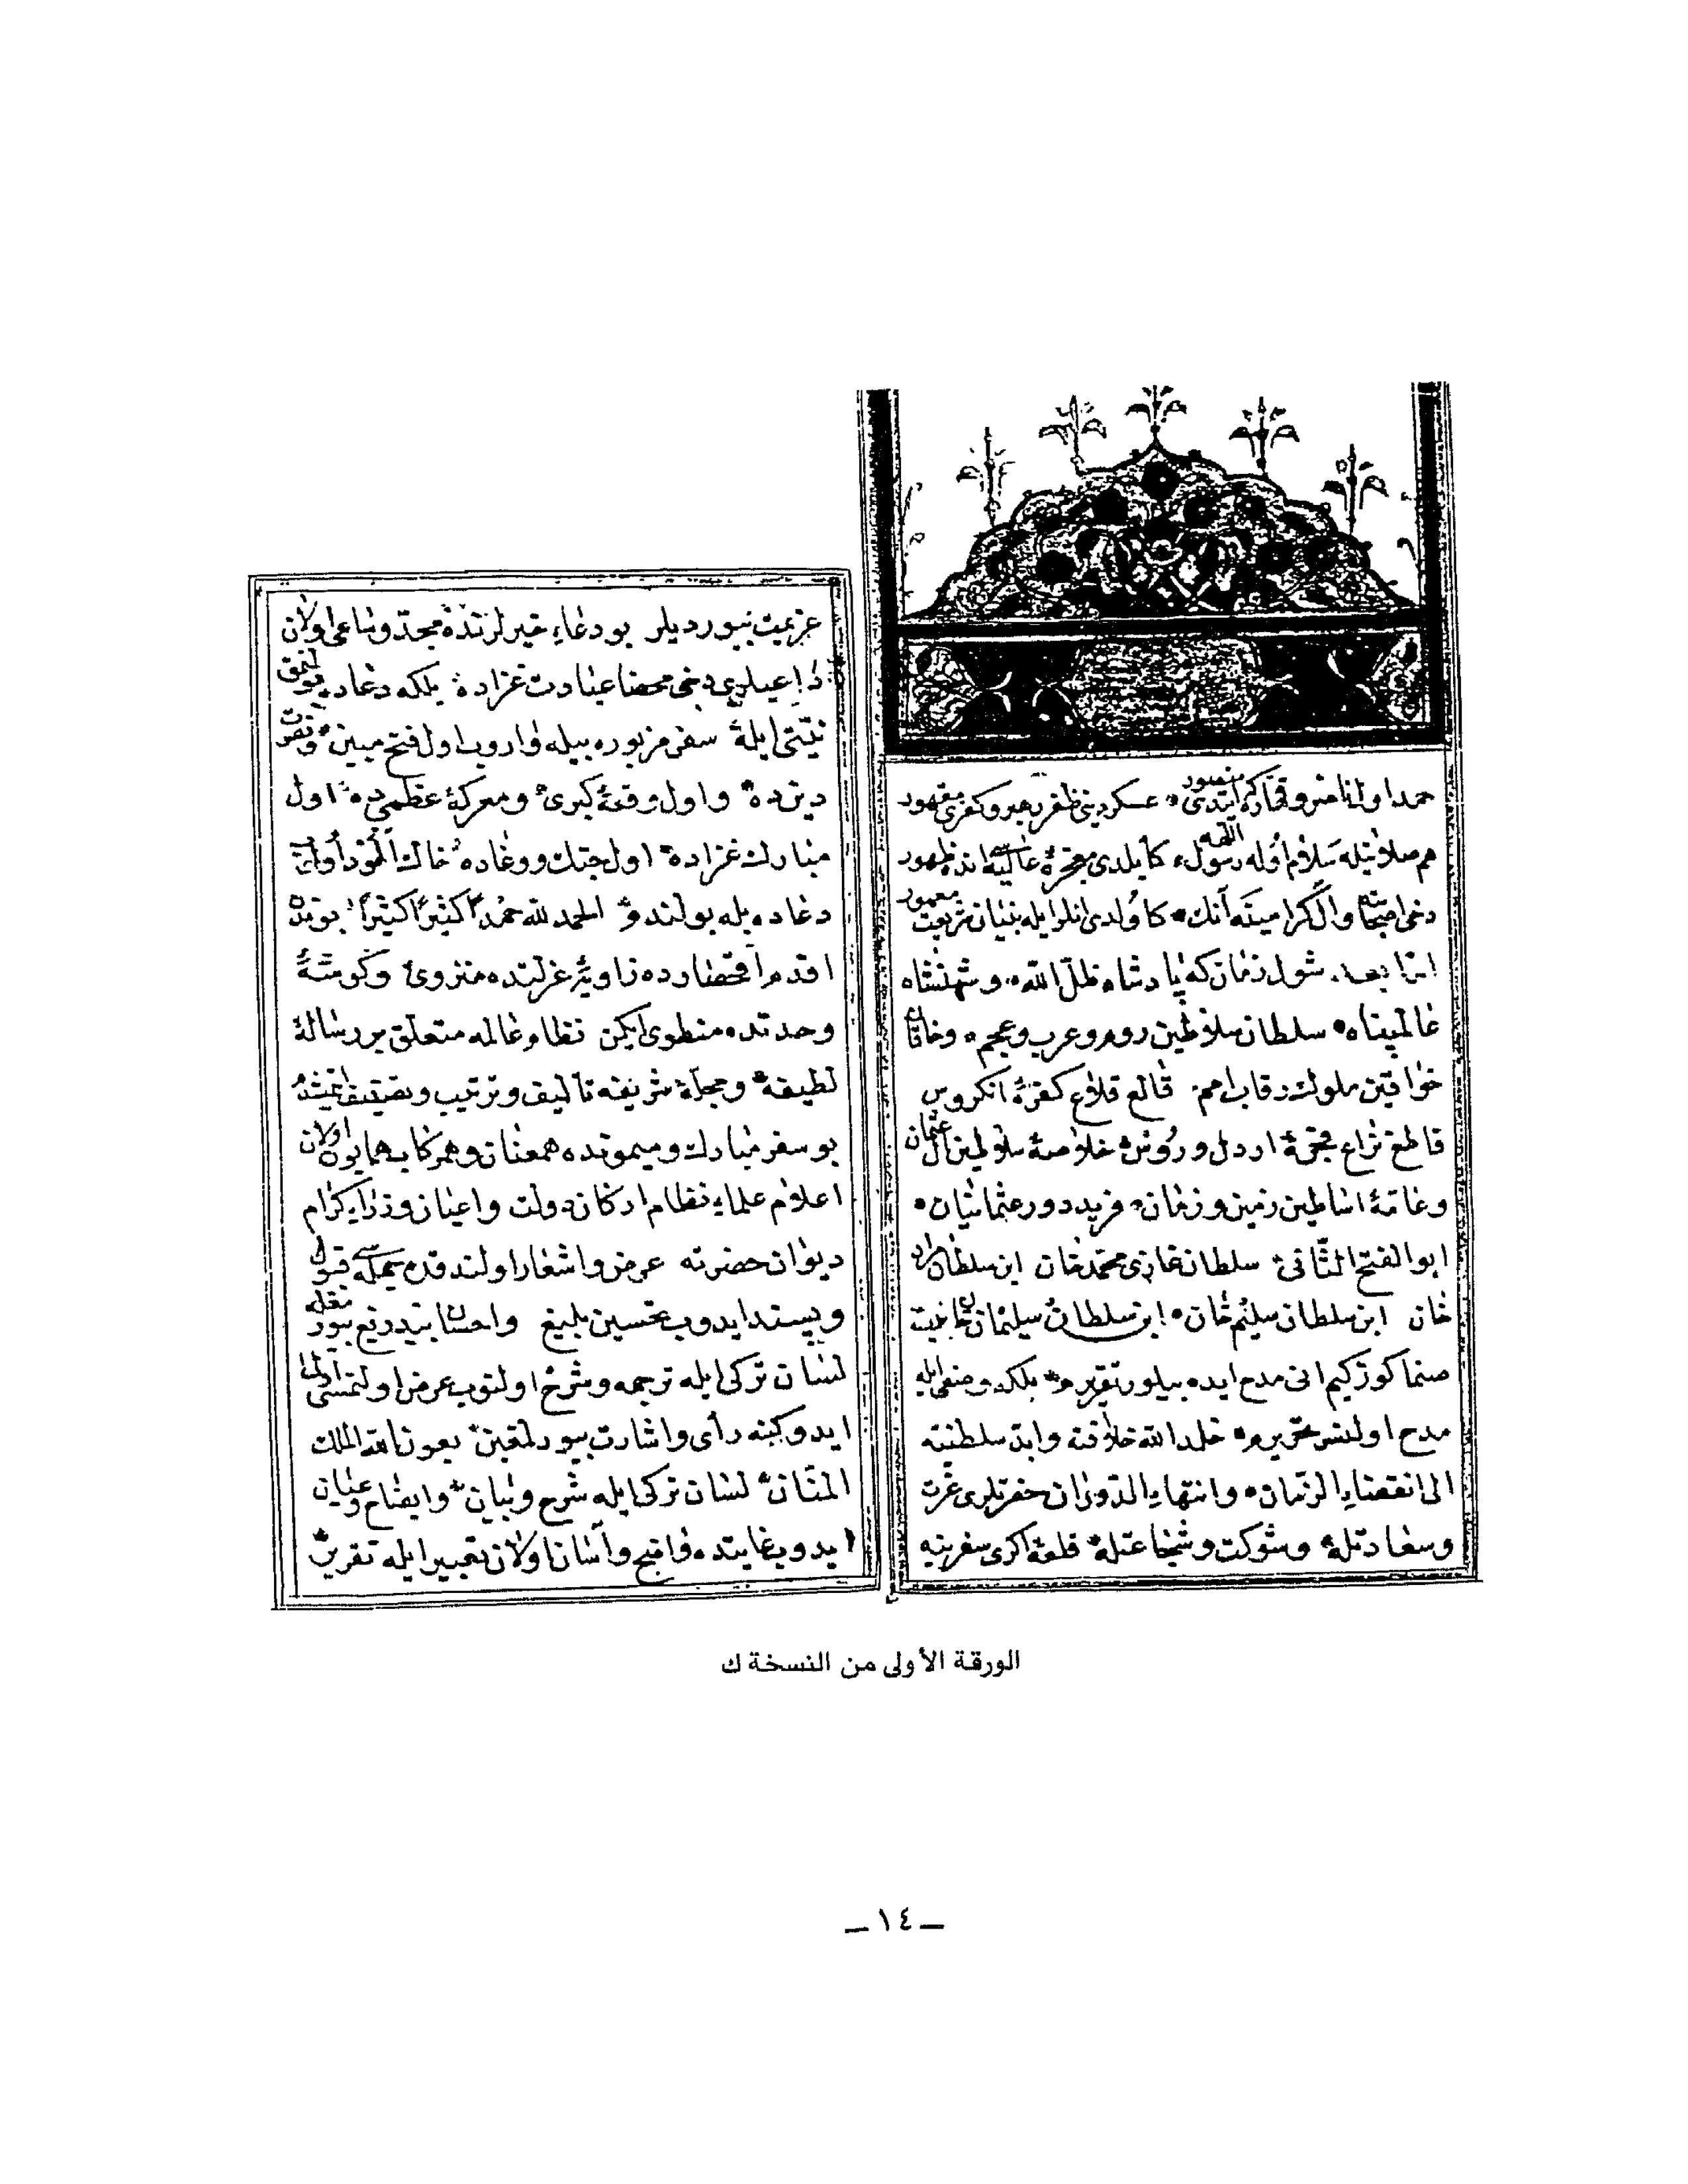 حمد اول ناصر و قهاره كه ايتدى منصور عسكر دينى ظفر كفرى مقهور
هم صلاتيله سلام اوله رسول اللهه كايلدى معجزهٔ عاليه اندن ظهور
دخى اصحاب و آل كرامينه آنك كاولدى انلر ايله بنيان شريعت معمور
اما بعد شول زمان كه پادشاه ظل الله و شهنشاه
عالمپناه سلطان سلاطين روم و عرب و عجم و خاقان
خواقين ملوك رقاب امم قالع قلاع كفرهٔ انكروس
قاطع نزاع فجرهٔ اردل و روس خلاصهٔ سلاطين آل عثمان
اساطين زمين و زمان فريد دور عثمانيان
ابو الفتح الثانى سلطان غازى محمد خان ابن سلطان مراد
خان ابن سلطان سليم خان ابن سلطان سليمان خان
كيم انى مدح ايده بيلور تقريرم بلكه وصفى ايله
مدح اولنسر تحريرم خلد الله خلافته وابد سلطنته
الى انقضاء الزمان وانتهاء الدوران حضرتلرى عزت
وسعادتله وشوكت وشجاعتله قلعهٔ اكرى سفرينه
عزيمت بيورديلر بو دعاء خيرلرنده مجد وساعى اولان
داعيلرى دخى محضا عبادت غزاده بلكه دعاده
نيتى ايله سفر مزبوره بيله واروب اول فتح مبين ونصرت
دينده و اول وقعهٔ كبرى ومعركهٔ عظمى ده اول
مبارك غزاده اول جنك ووغاده
دعاده بيله بولندو الحمد لله حمدا كثيرا كثيرا بوندن
اقدم اقحصارده زاويهٔ عزلتده منزوى وكوشهٔ
وحدتده منطوى ايكن نظام عالمه متعلق بر رسالهٔ
لطيفه ومجلهٔ شريفه تأليف وترتيب وتصنيف
بو سفر مبارك وميمونده همعنان وهمركاب همايون اولان
اعلام علماء نظام اركان دولت واعيان وزراء كرام
ديوان حضرته عرض واشعار اولندقده قبول
وپسند ايدوب تحسين بليغ واحسان بيدريغ
لسان تركى ايله ترجمه وشرح اولنوب عرض اولنمسنى
رأى واشارت بيورلمغين بعون الله الملك
المنان لسان تركى ايله شرح وبيان وايضاح وعيان
ايدوب غايتده واضح وآسان اولان تعبير ايله تقرير
الورقة الأولى من النسخة ك
ــ ١٤ ــ